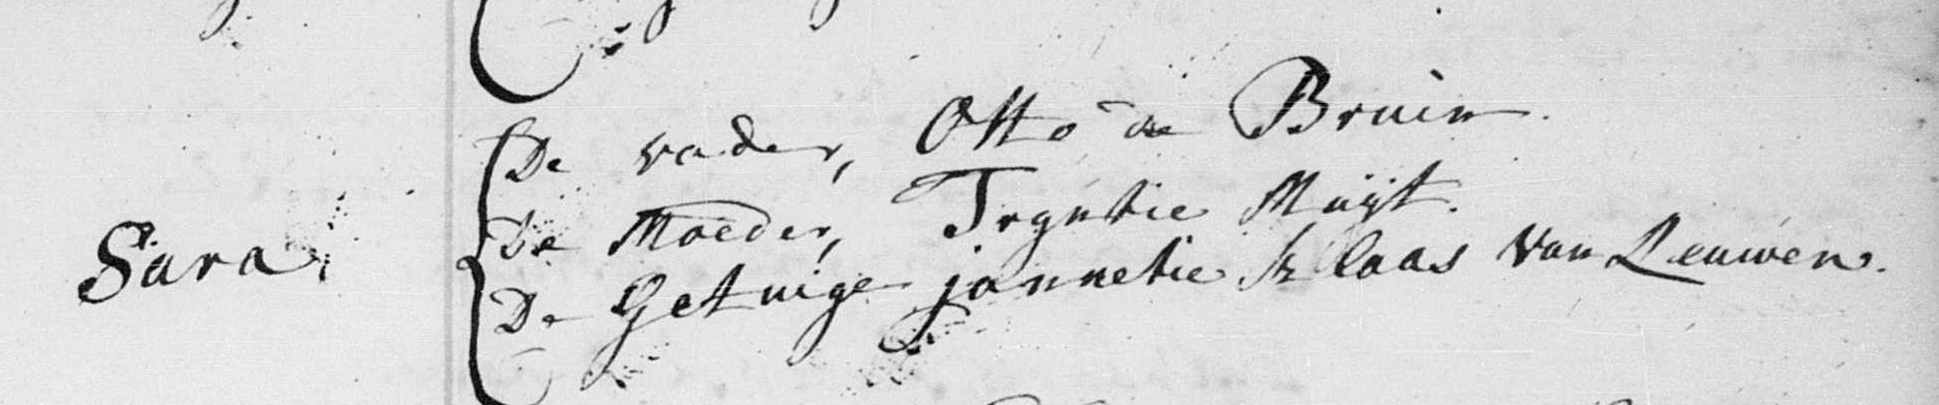 Sara,
De vader, Otto de Bruin
De Moeder, Tryntie Muijt.
De Getuige jannetie Klaas Van Leeuwen.